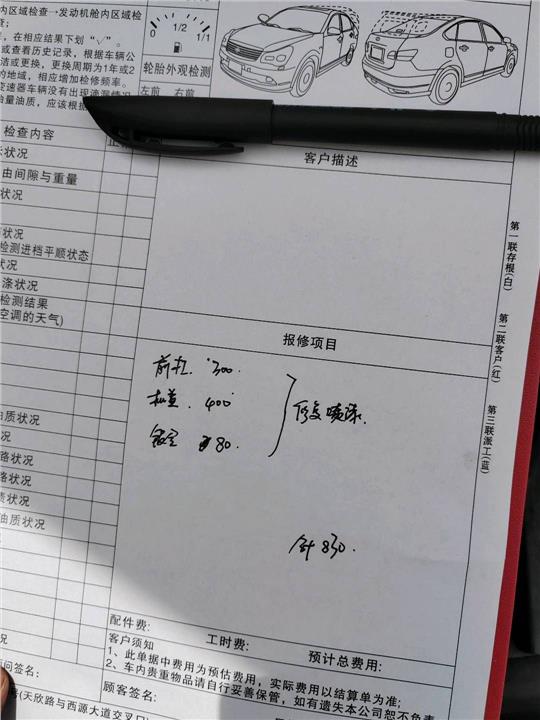 内区域检查→发动机舱内区域检
查;
,在相应结果下划“√”。
或查看历史记录，根据车辆公
洁或更换，更换周期为1年或2
的地域，相应增加检修频率。
变速器车辆没有出现渗漏情况
油量油质，应该根据
0 1/2 1/1
轮胎外观检测
左前 右前
检查内容
状况
由间隙与重量
状况
状况
检测进档平顺状态
状况
涤状况
检测结果
空调的天气)
油质状况
况
路状况
路状况
质状况
油质状况
况
客户描述
报修项目
前杠 300.
机盖. 400
80.
修复喷漆.
合计 830.
第一联存根(白)
第二联客户(红)
第三联派工(蓝)
配件费: 工时费: 预计总费用:
客户须知
1、此单据中费用为预估费用，实际费用以结算单为准;
2、车内贵重物品请自行妥善保管，如有遗失本公司恕不负责
问签名: 顾客签名:
(天欣路与西源大道交叉口